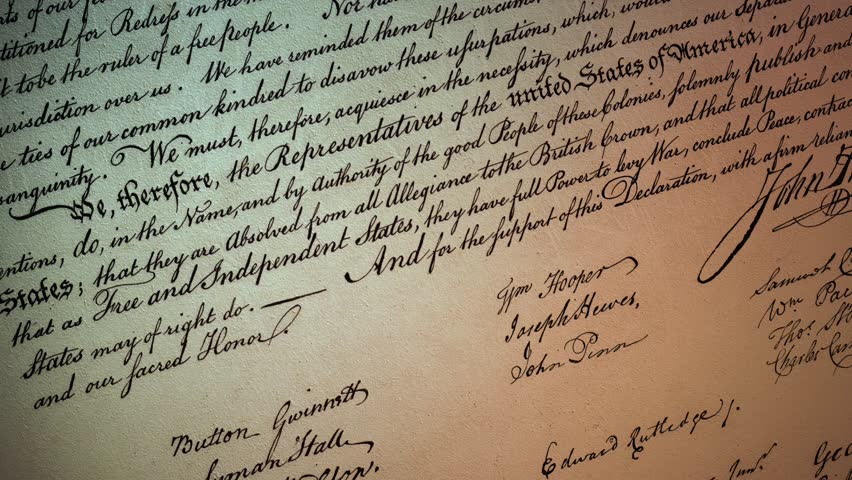 of our
titioned for Redress in the
t to be the ruler of a free people. Nor ha
urisdiction over us. We have reminded them of the circum
e ties of our common kindred to disavow these usurpations, which, would
sanguinity. We must, therefore, acquiesce in the necessity, which denounces our Separat
We, therefore, the Representatives of the united States of America, in General
entions, do, in the Name, and by Authority of the good People of these Colonies, solemnly publish and
States; that they are Absolved from all Allegiance to the British Crown, and that all political con
that as Free and Independent States, they have full Power to levy War, conclude Peace, contrac
States may of right do. — And for the support of this Declaration, with a firm relian
and our sacred Honor.
John H
Wm Hooper
Joseph Hewes,
John Penn
Samuel
Wm Pac
Thos. St
Charles Car
Button Gwinnett
yman Hall
ton.
Edward Rutledge /.
Junr.
Geo